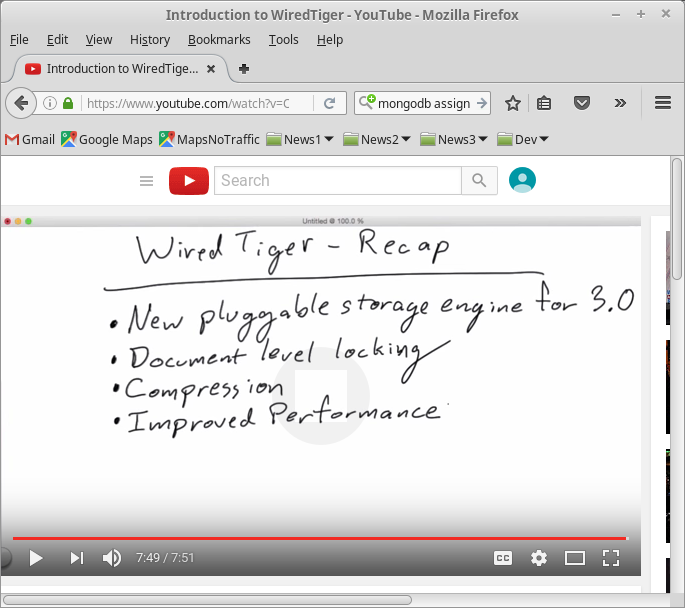 Introduction to WiredTiger - YouTube - Mozilla Firefox
File Edit View History Bookmarks Tools Help
Introduction to WiredTige...
https://www.youtube.com/watch?v=C
mongodb assign
Gmail Google Maps MapsNoTraffic News1 News2 News3 Dev
Search
Untitled @ 100.0 %
Wired Tiger - Recap
• New pluggable storage engine for 3.0
• Document level locking
• Compression
• Improved Performance
7:49 / 7:51 CC